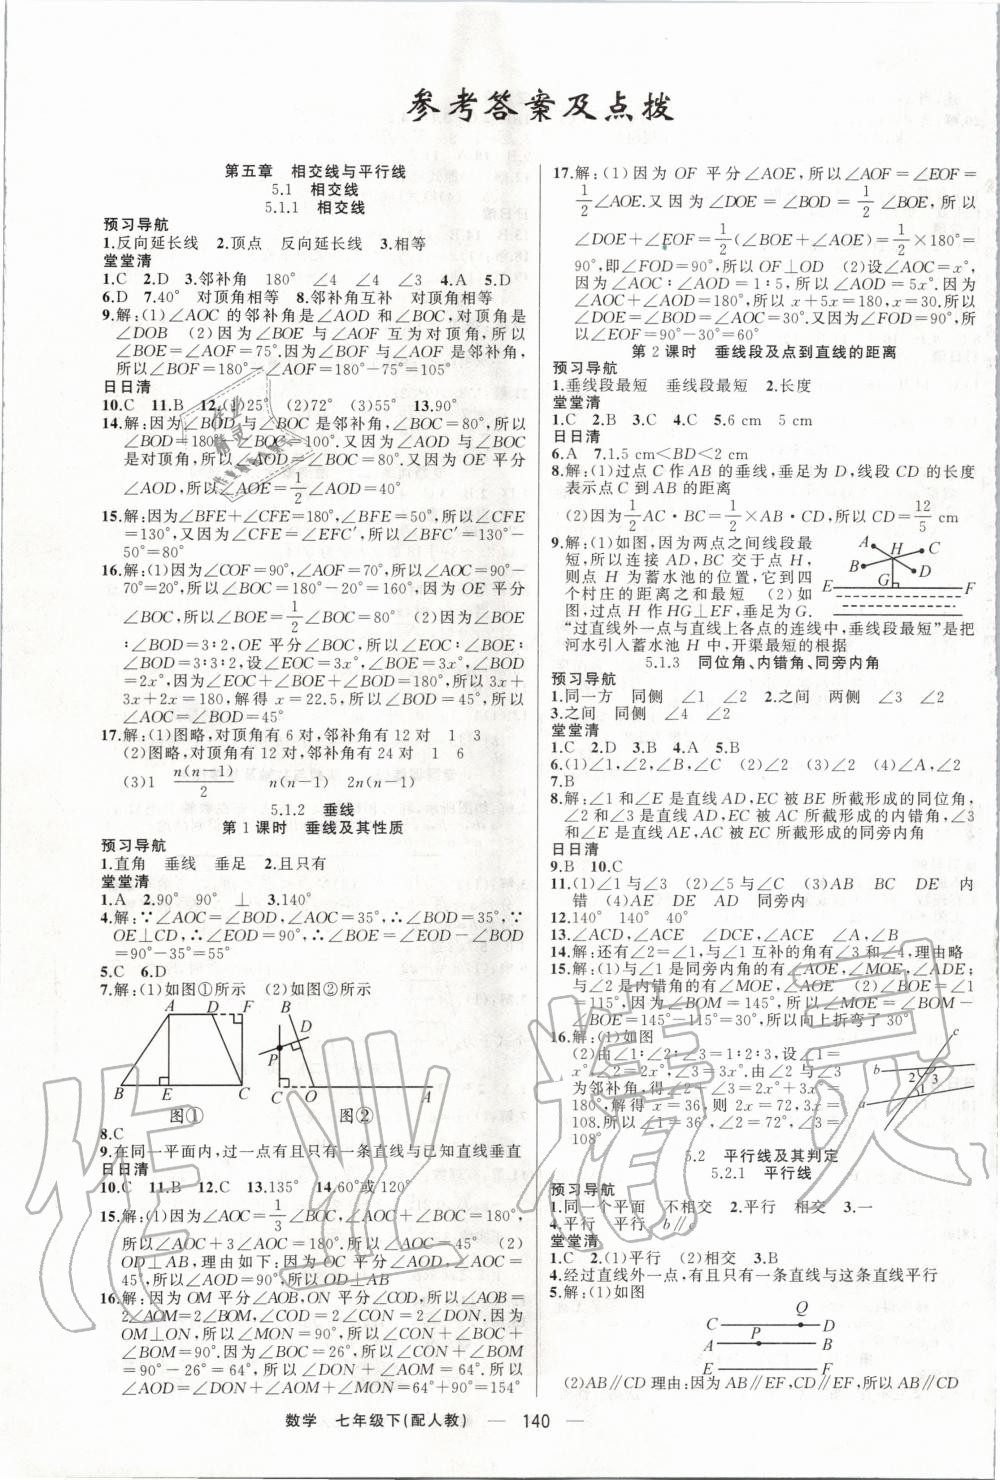 参考答案及点拨
第五章　相交线与平行线
5.1　相交线
5.1.1　相交线
预习导航
1.反向延长线　2.顶点　反向延长线　3.相等
堂堂清
1.C　2.D　3.邻补角　180°　∠4　∠3　∠4　4.A　5.D
6.D　7.40°　对顶角相等　8.邻补角互补　对顶角相等
9.解:(1)∠AOC的邻补角是∠AOD和∠BOC,对顶角是
∠DOB　(2)因为∠BOE与∠AOF互为对顶角,所以
∠BOE=∠AOF=75°.因为∠BOF与∠AOF是邻补角,
所以∠BOF=180°-∠AOF=180°-75°=105°
日日清
10.C　11.B　12.(1)25°　(2)72°　(3)55°　13.90°
14.解:因为∠BOD与∠BOC是邻补角,∠BOC=80°,所以
∠BOD=180°-∠BOC=100°.又因为∠AOD与∠BOC
是对顶角,所以∠AOD=∠BOC=80°.又因为OE平分
∠AOD,所以∠AOE=1/2∠AOD=40°
15.解:因为∠BFE+∠CFE=180°,∠BFE=50°,所以∠CFE
=130°,又因为∠CFE=∠EFC′,所以∠BFC′=130°-
50°=80°
16.解:(1)因为∠COF=90°,∠AOF=70°,所以∠AOC=90°-
70°=20°,所以∠BOC=180°-20°=160°,因为OE平分
∠BOC,所以∠BOE=1/2∠BOC=80°　(2)因为∠BOE
:∠BOD=3:2,OE平分∠BOC,所以∠EOC:∠BOE:
∠BOD=3:3:2,设∠EOC=3x°,∠BOE=3x°,∠BOD
=2x°,因为∠EOC+∠BOE+∠BOD=180°,所以3x+
3x+2x=180,解得x=22.5,所以∠BOD=45°,所以
∠AOC=∠BOD=45°
17.解:(1)图略,对顶角有6对,邻补角有12对　1　3
(2)图略,对顶角有12对,邻补角有24对　1　6
(3)1　n(n-1)/2　n(n-1)　2n(n-1)
5.1.2　垂线
第1课时　垂线及其性质
预习导航
1.直角　垂线　垂足　2.且只有
堂堂清
1.A　2.90°　90°　⊥　3.140°
4.解:∵∠AOC=∠BOD,∠AOC=35°,∴∠BOD=35°,∵
OE⊥CD,∴∠EOD=90°,∴∠BOE=∠EOD-∠BOD
=90°-35°=55°
5.C　6.D
7.解:(1)如图①所示　(2)如图②所示
A　D　F　B　D
P
B　E　C　C　O　A
图①　图②
8.C
9.在同一平面内,过一点有且只有一条直线与已知直线垂直
日日清
10.C　11.B　12.C　13.135°　14.60°或120°
15.解:(1)因为∠AOC=1/3∠BOC,∠AOC+∠BOC=180°,
所以∠AOC+3∠AOC=180°.所以∠AOC=45°　(2)
OD⊥AB,理由如下:因为OC平分∠AOD,所以
∠AOD=90°,所以OD⊥AB
16.解:因为OM平分∠AOB,ON平分∠COD,所以∠AOB=
2∠AOM=2∠BOM,∠COD=2∠CON=2∠DON.因为
OM⊥ON,所以∠MON=90°,所以∠CON+∠BOC+
∠BOM=90°,因为∠BOC=26°,所以∠CON+∠BOM
=90°-26°=64°,所以∠DON+∠AOM=64°.所以
∠AOD=∠DON+∠AOM+∠MON=64°+90°=154°
17.解:(1)因为OF平分∠AOE,所以∠AOF=∠EOF=
1/2∠AOE.又因为∠DOE=∠BOD=1/2∠BOE,所以
∠DOE+∠EOF=1/2(∠BOE+∠AOE)=1/2×180°=
90°,即∠FOD=90°,所以OF⊥OD　(2)设∠AOC=x°,
因为∠AOC:∠AOD=1:5,所以∠AOD=5x°.因为
∠AOC+∠AOD=180°,所以x+5x=180,x=30.所以
∠DOE=∠BOD=∠AOC=30°.又因为∠FOD=90°,所
以∠EOF=90°-30°=60°
第2课时　垂线段及点到直线的距离
预习导航
1.垂线段最短　垂线段最短　2.长度
堂堂清
1.C　2.B　3.C　4.C　5.6 cm　5 cm
日日清
6.A　7.1.5 cm<BD<2 cm
8.解:(1)过点C作AB的垂线,垂足为D,线段CD的长度
表示点C到AB的距离
(2)因为1/2AC·BC=1/2×AB·CD,所以CD=12/5 cm
9.解:(1)如图,因为两点之间线段最
短,所以连接AD,BC交于点H,
则点H为蓄水池的位置,它到四
个村庄的距离之和最短　(2)如
图,过点H作HG⊥EF,垂足为G.
A　H　C
B　D
G
E　F
“过直线外一点与直线上各点的连线中,垂线段最短”是把
河水引入蓄水池H中,开渠最短的根据
5.1.3　同位角、内错角、同旁内角
预习导航
1.同一方　同侧　∠1　∠2　2.之间　两侧　∠3　∠2
3.之间　同侧　∠4　∠2
堂堂清
1.C　2.D　3.B　4.A　5.B
6.(1)∠1,∠2,∠5,∠6　(2)∠2　(3)∠2　(4)∠A,∠5
7.B
8.解:∠1和∠E是直线AD,EC被BE所截形成的同位角,
∠2和∠3是直线AD,EC被AC所截形成的内错角,∠3
和∠E是直线AC,BE被EC所截形成的同旁内角
日日清
9.B　10.C
11.(1)∠1与∠3　(2)∠5与∠C　(3)AB　BC　DE　内
错　(4)AE　DE　AD　同旁内
12.140°　140°　40°
13.∠ACD,∠ACE　∠DCE,∠ACE　∠A,∠B
14.解:还有∠2=∠1,与∠1互补的角有∠3和∠4,理由略
15.解:(1)与∠1是同旁内角的有∠AOE,∠MOE,∠ADE;
与∠2是内错角的有∠MOE,∠AOE　(2)∠BOE=∠1
=115°,因为∠BOM=145°,所以∠MOE=∠BOM-
∠BOE=145°-115°=30°,所以向上折弯了30°
16.解:(1)如图
(2)由∠1:∠2:∠3=1:2:3,设∠1=
x°,∠2=2x°,∠3=3x°.由∠2与∠3
为邻补角,得∠2+∠3=2x°+3x°=
180°,解得x=36,故2x=72,3x=
108.所以∠1=36°,∠2=72°,∠3=
108°
c
b
2　3
a　1
5.2　平行线及其判定
5.2.1　平行线
预习导航
1.同一个平面　不相交　2.平行　3.一
4.平行　平行　b∥c
堂堂清
1.C　2.(1)平行　(2)相交　3.B
4.经过直线外一点,有且只有一条直线与这条直线平行
5.解:(1)如图
Q
C　D
P
A　B
E　F
(2)AB∥CD理由:因为AB∥EF,CD∥EF,所以AB∥CD
数学　七年级下(配人教)　—　140　—
作业精灵